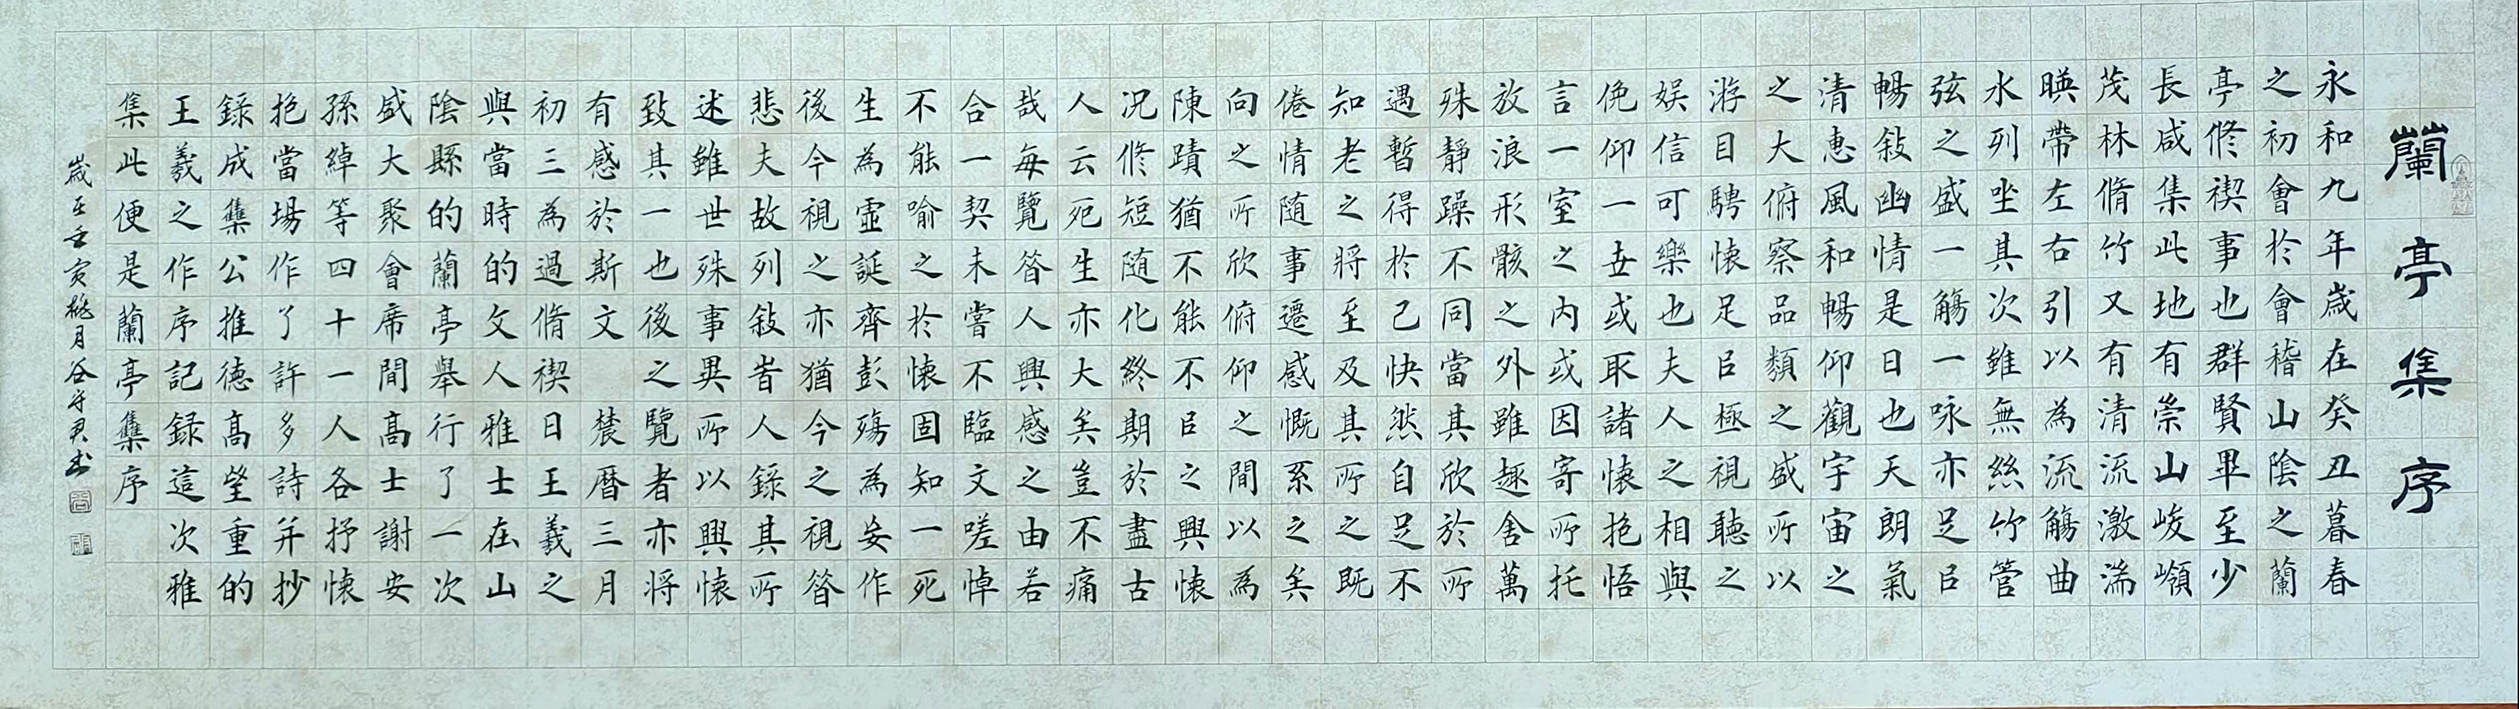 蘭亭集序
永和九年歲在癸丑暮春
之初會於會稽山陰之蘭
亭修禊事也群賢畢至少
長咸集此地有崇山峻嶺
茂林脩竹又有清流激湍
暎帶左右引以為流觴曲
水列坐其次雖無絲竹管
弦之盛一觴一咏亦足㠯
暢敍幽情是日也天朗氣
清惠風和暢仰觀宇宙之
之大俯察品類之盛所以
游目騁懷足㠯極視聽之
娱信可樂也夫人之相與
俛仰一世或取諸懷抱悟
言一室之内或因寄所托
放浪形骸之外雖趣舍萬
殊静躁不同當其欣於所
遇暫得於己快然自足不
知老之將至及其所之既
倦情随事遷感慨系之矣
向之所欣俯仰之間以為
陳蹟猶不能不㠯之興懷
况修短随化終期於盡古
人云死生亦大矣豈不痛
哉每覽昝人興感之由若
合一契未嘗不臨文嗟悼
不能喻之於懷固知一死
生為虛誕齊彭殤為妄作
後今視之亦猶今之視昝
悲夫故列敍昔人錄其所
述雖世殊事異所以興懷
致其一也後之覽者亦將
有感於斯文 農曆三月
初三為過脩禊日王羲之
與當時的文人雅士在山
陰縣的蘭亭舉行了一次
盛大聚會席間高士謝安
孫綽等四十一人各抒懷
抱當場作了許多詩并抄
錄成集公推德高望重的
王羲之作序記録這次雅
集此便是蘭亭集序
歲在壬寅桃月谷守君书